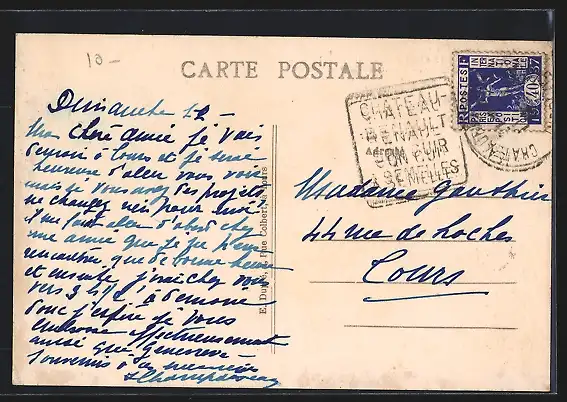 10 -
CARTE POSTALE
Dimanche 12 -
Ma chère amie je vais
demain à Tours et je serai
heureuse d'aller vous voir
mais si vous avez des projets
ne changez rien pour moi
il me faut aller d'abord chez
une amie que je ne peux
rencontrer que de bonne heure
et ensuite j'irai chez vous
vers 3 h 1/2, à demain
donc j'espère je vous
embrasse affectueusement
ainsi que Geneviève -
Souvenirs à ces messieurs
E. Dupré, Rue Colbert, Tours
CHATEAU-
RENAULT
SON CUIR
SEMELLES
POSTES
RF
INTERNATIONALE
EXPOSITION
PARIS
37
1F50
CHATEAU
Madame Gauthier
44 rue de Loches
Tours